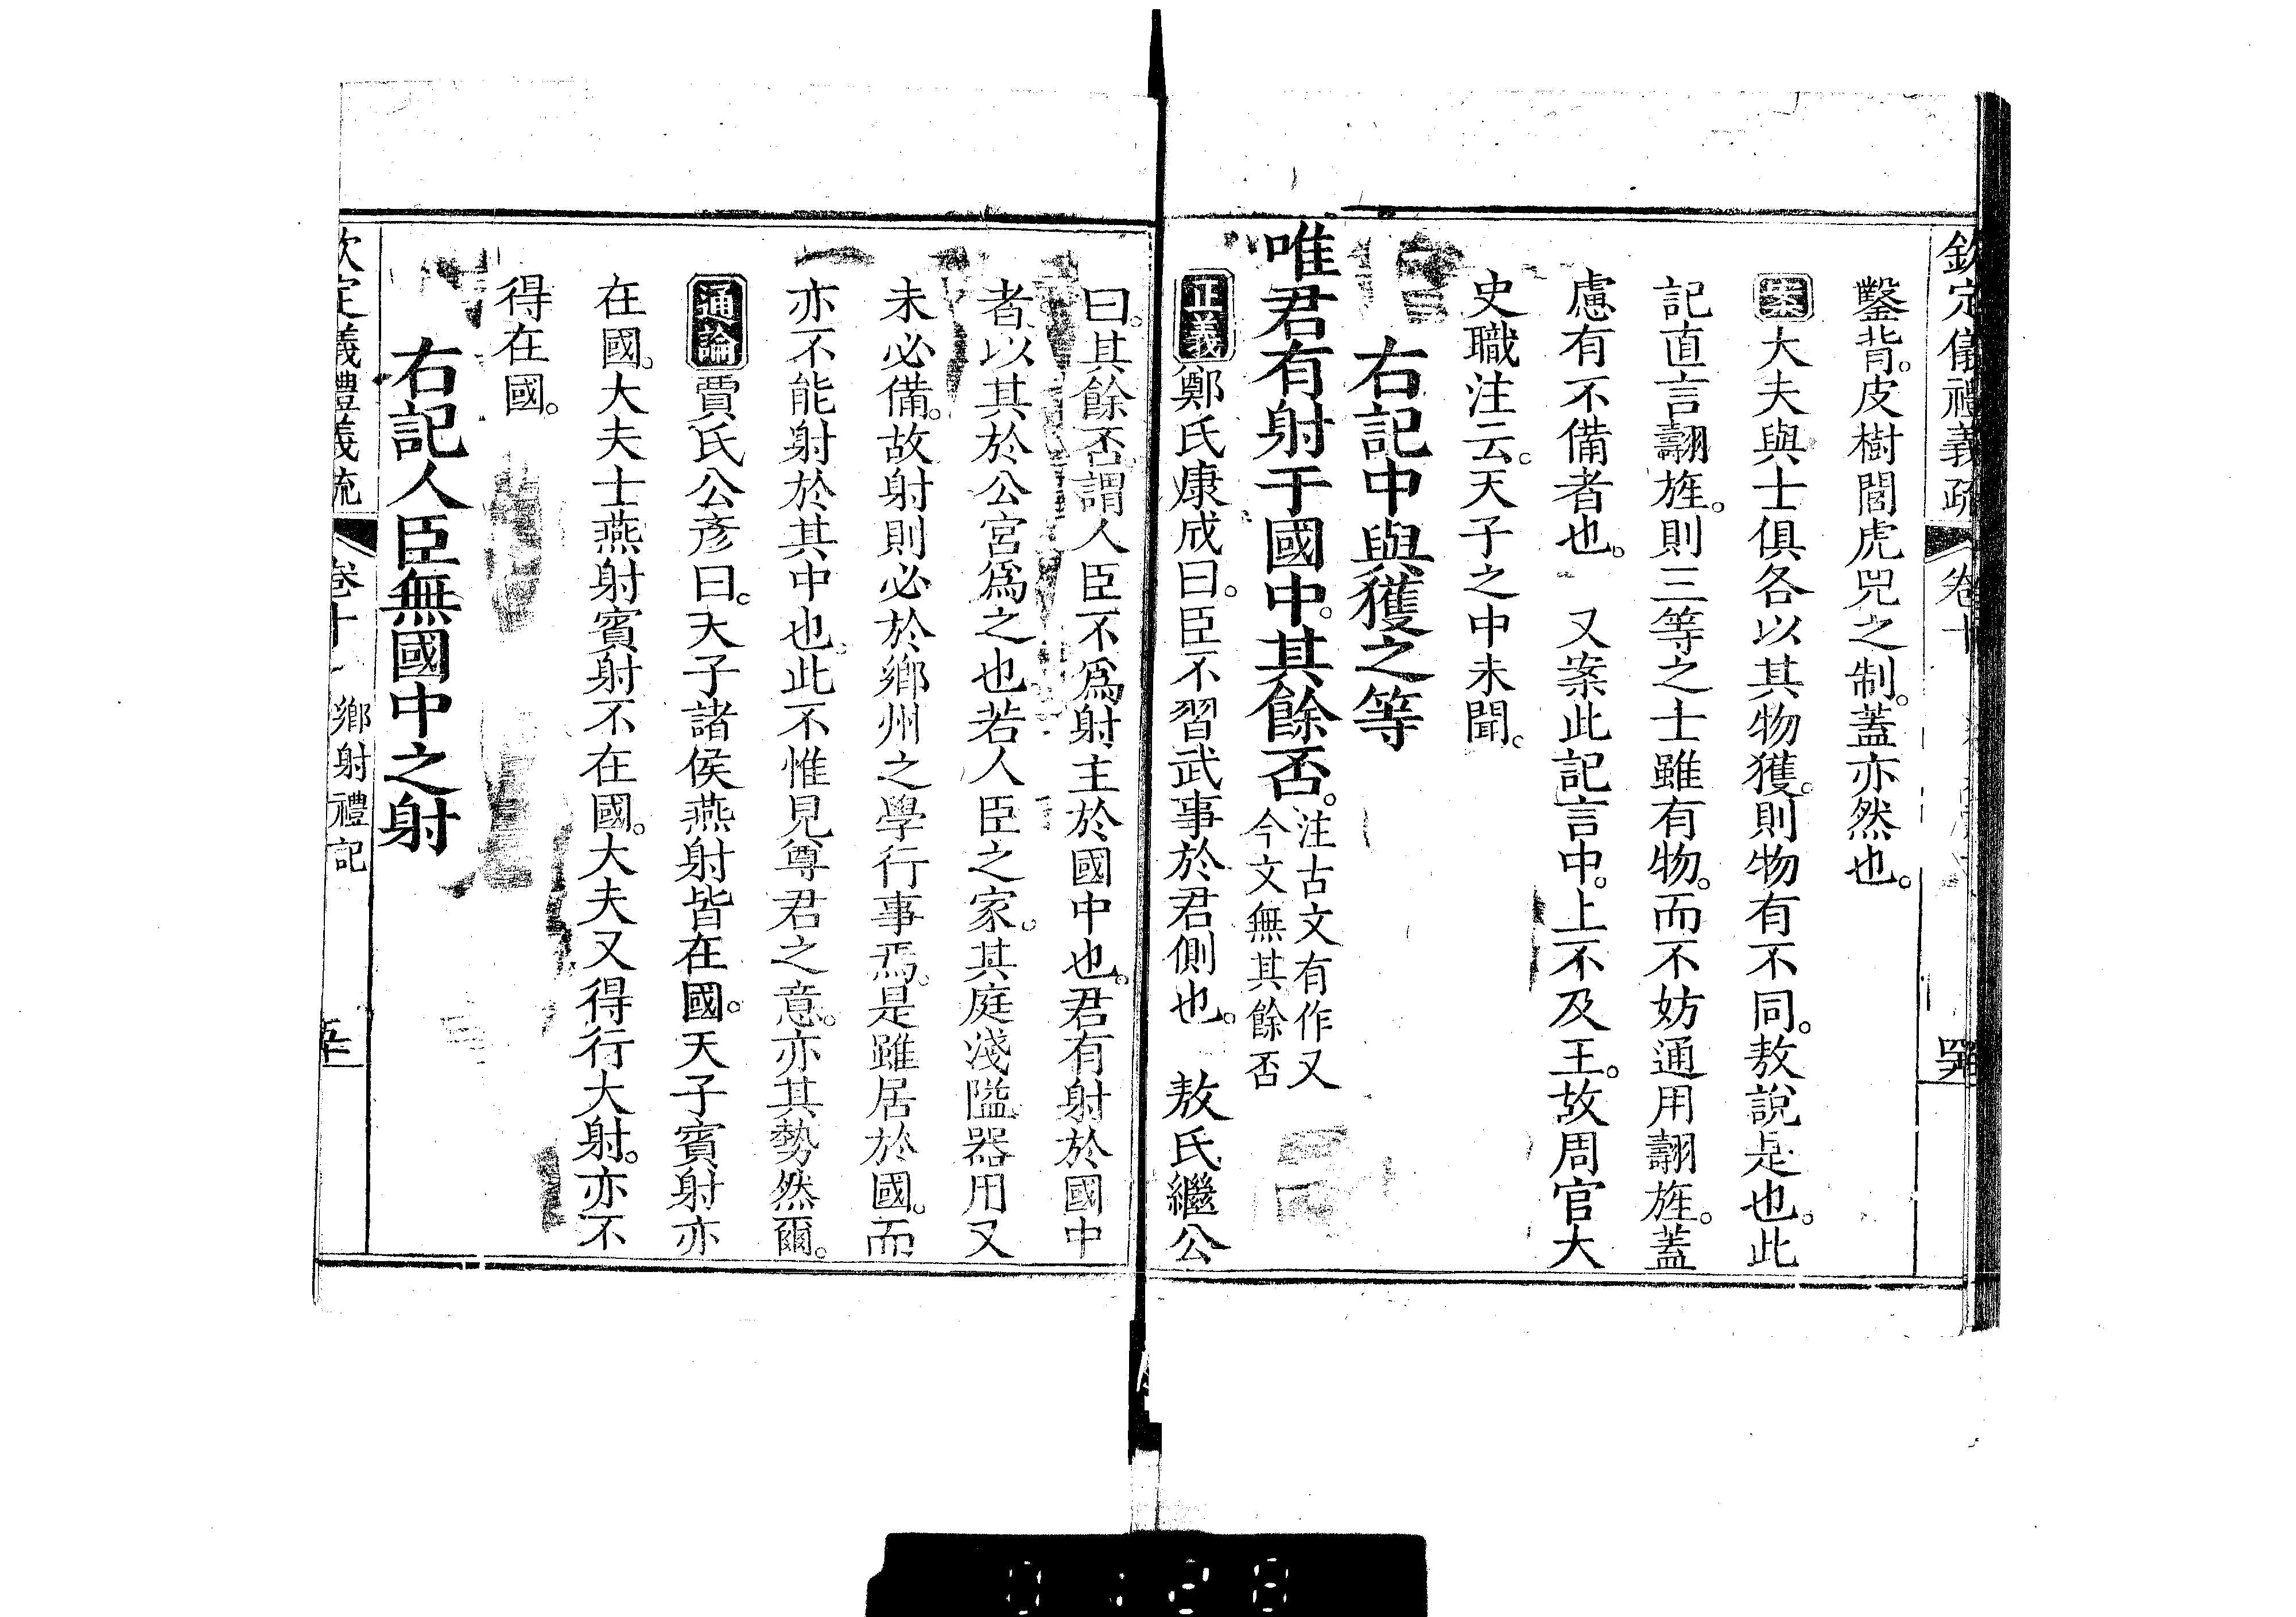 欽定儀禮義疏 卷十
鑿背。皮樹閭虎兕之制。蓋亦然也。
案大夫與士俱各以其物獲。則物有不同。敖說是也。此
記直言翿旌。則三等之士雖有物。而不妨通用翿旌。蓋
慮有不備者也。 又案此記言中。上不及王。故周官大
史職注云。天子之中未聞。
右記中與獲之等
唯君有射于國中。其餘否。注古文有作又
今文無其餘否
正義鄭氏康成曰。臣不習武事於君側也。 敖氏繼公
曰。其餘否。謂人臣不爲射主於國中也。君有射於國中
者。以其於公宮爲之也若人臣之家。其庭淺隘。器用又
未必備。故射則必於鄉州之學行事焉。是雖居於國。而
亦不能射於其中也。此不惟見尊君之意。亦其勢然爾。
通論賈氏公彥曰。天子諸侯燕射皆在國。天子賓射亦
在國。大夫士燕射賓射不在國。大夫又得行大射。亦不
得在國。
右記人臣無國中之射
欽定儀禮義疏 卷十一 鄉射禮記
0128